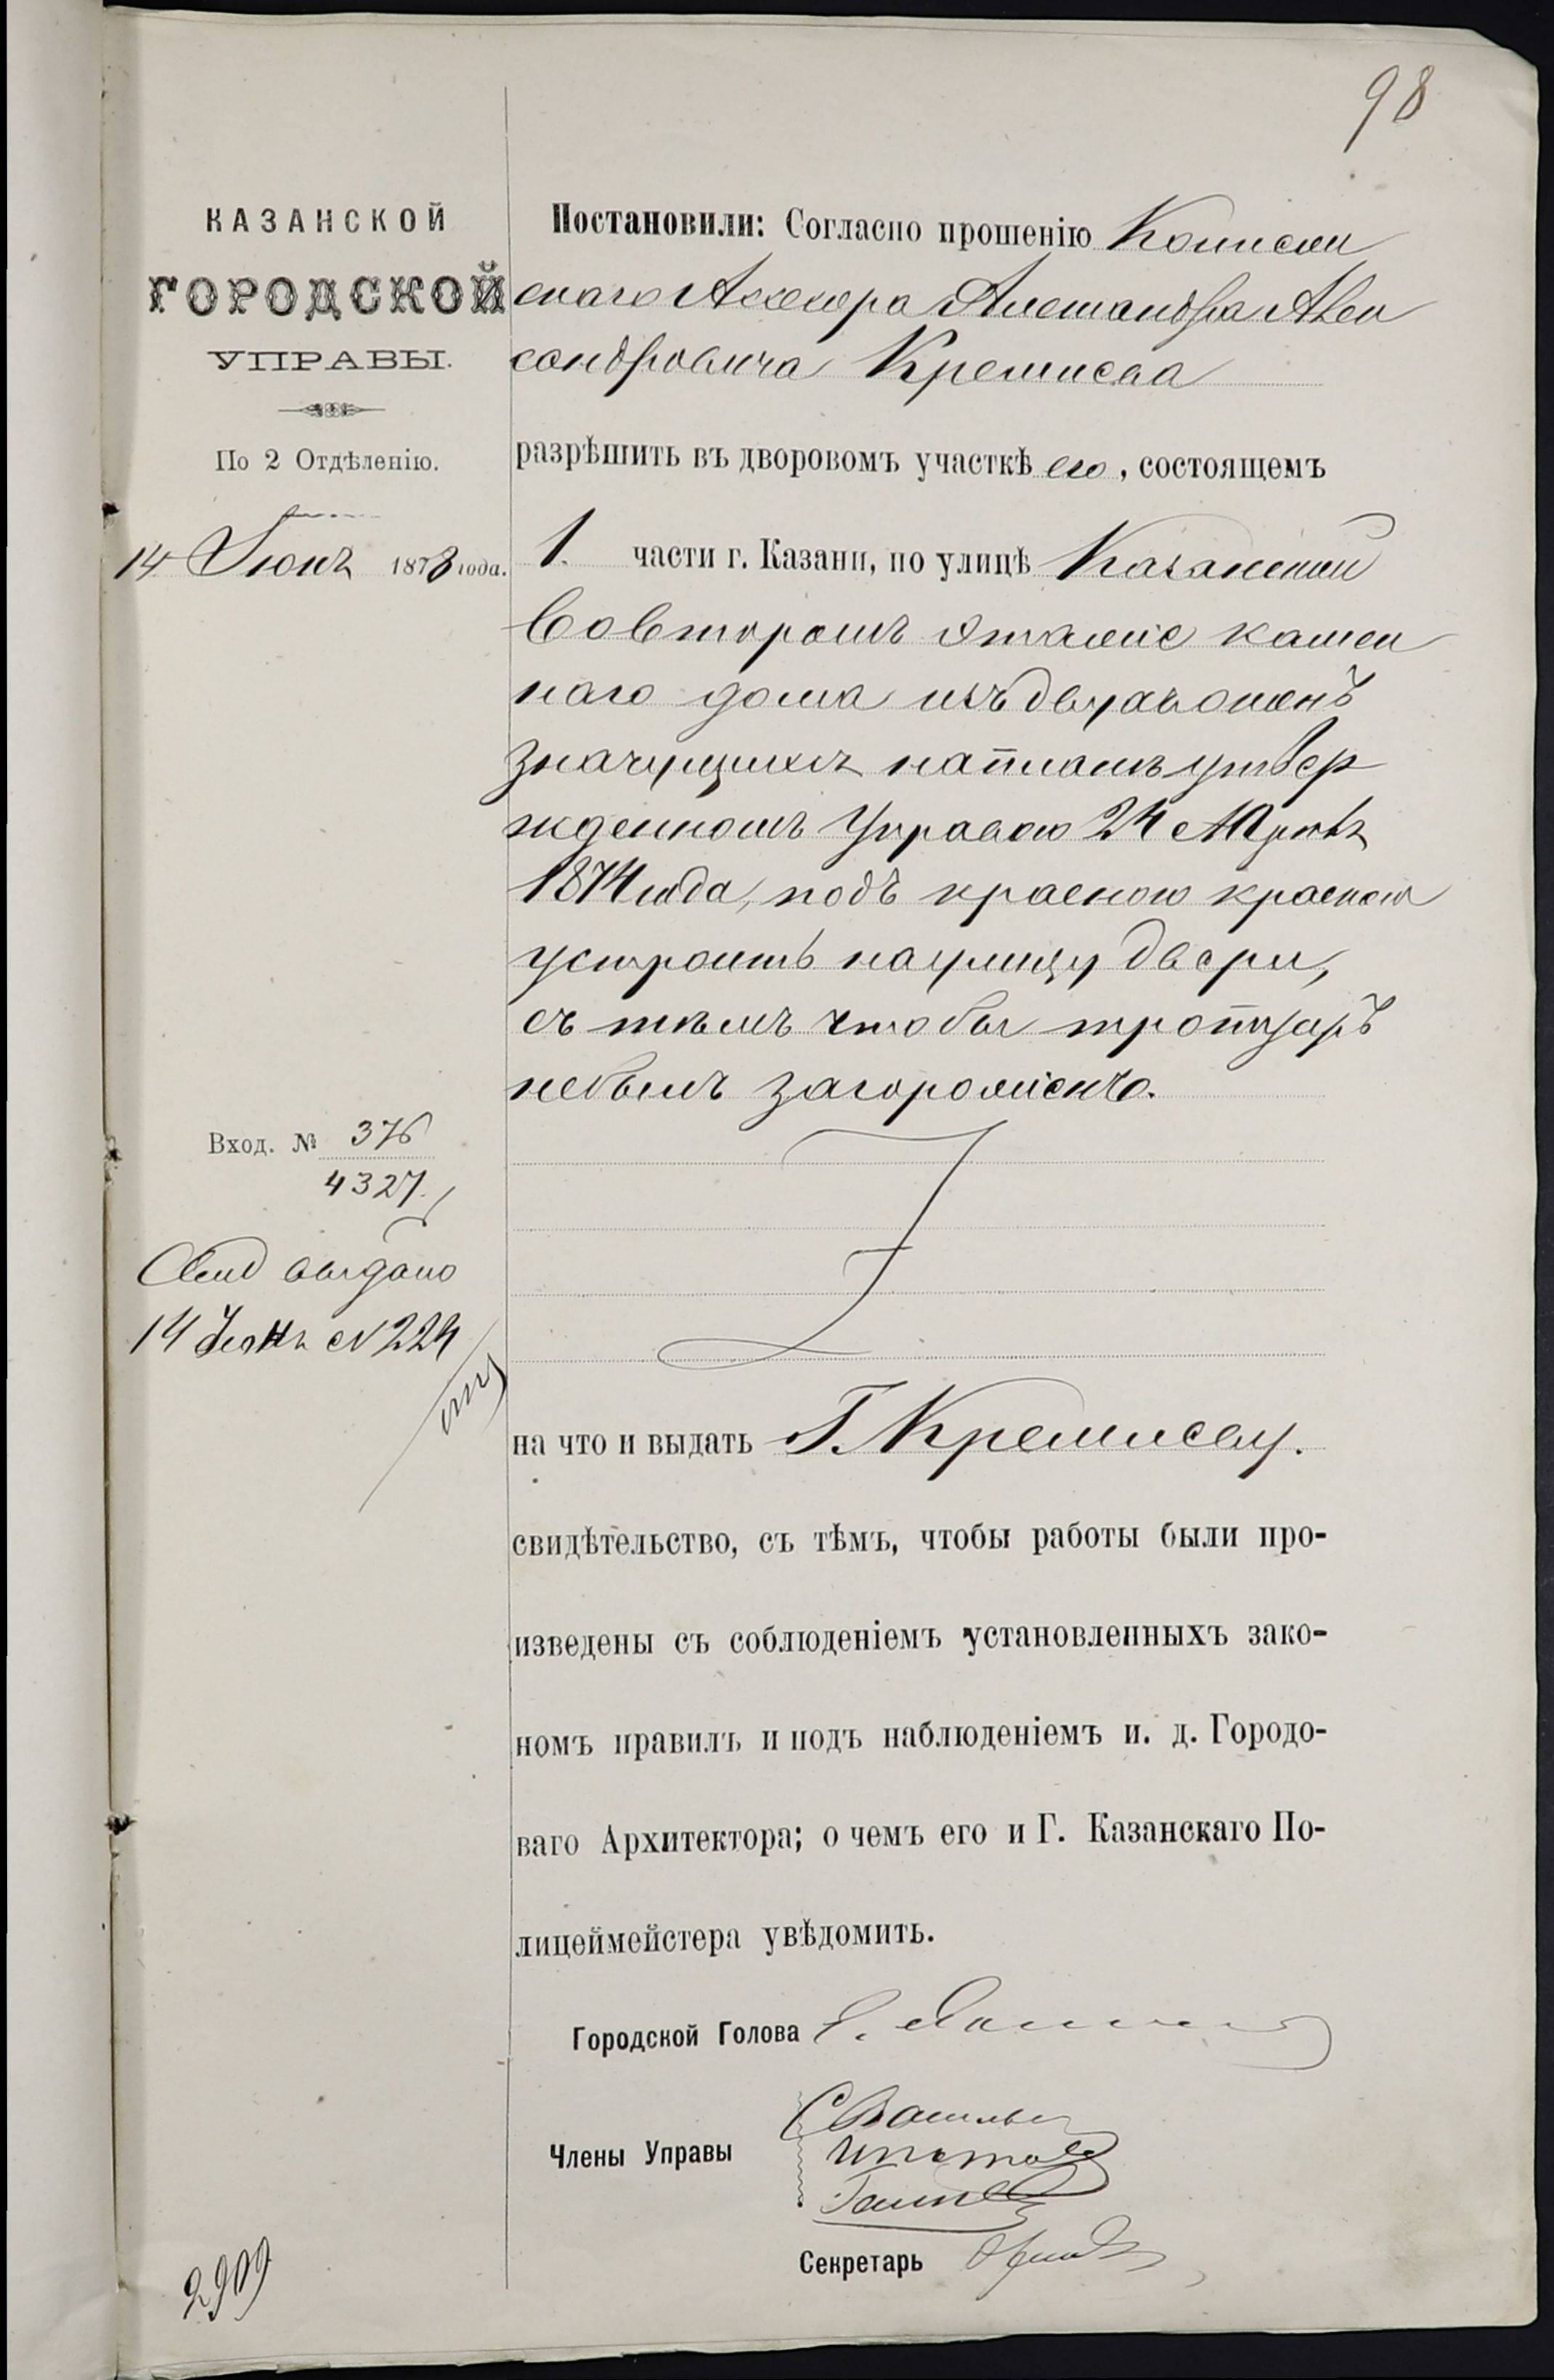 98
КАЗАНСКОЙ
ГОРОДСКОЙ
УПРАВЫ.
По 2 Отдѣленію.
14 Іюня 1878 года.
Постановили: Согласно прошенію Коллеж
скаго Ассесора Александра Алек
сандровича Кремлева
разрѣшить въ дворовомъ участкѣ его, состоящемъ
1. части г. Казани, по улицѣ Казанской
Во второмъ этажѣ камен
наго дома изъ двухъ оконъ
значущихся на планѣ утвер
жденномъ Управою 24
1874 года, подъ красною краскою
устроить на улицу двери,
съ тѣмъ чтобы тротуаръ
не былъ загороженъ.
Вход. № 376
4327.
Свид выдано
14 Іюня № 224
на что и выдать Г. Кремлеву.
свидѣтельство, съ тѣмъ, чтобы работы были про-
изведены съ соблюденіемъ установленныхъ зако-
номъ правилъ и подъ наблюденіемъ и. д. Городо-
ваго Архитектора; о чемъ его и Г. Казанскаго По-
лицеймейстера увѣдомить.
Городской Голова
Члены Управы
Секретарь
2909